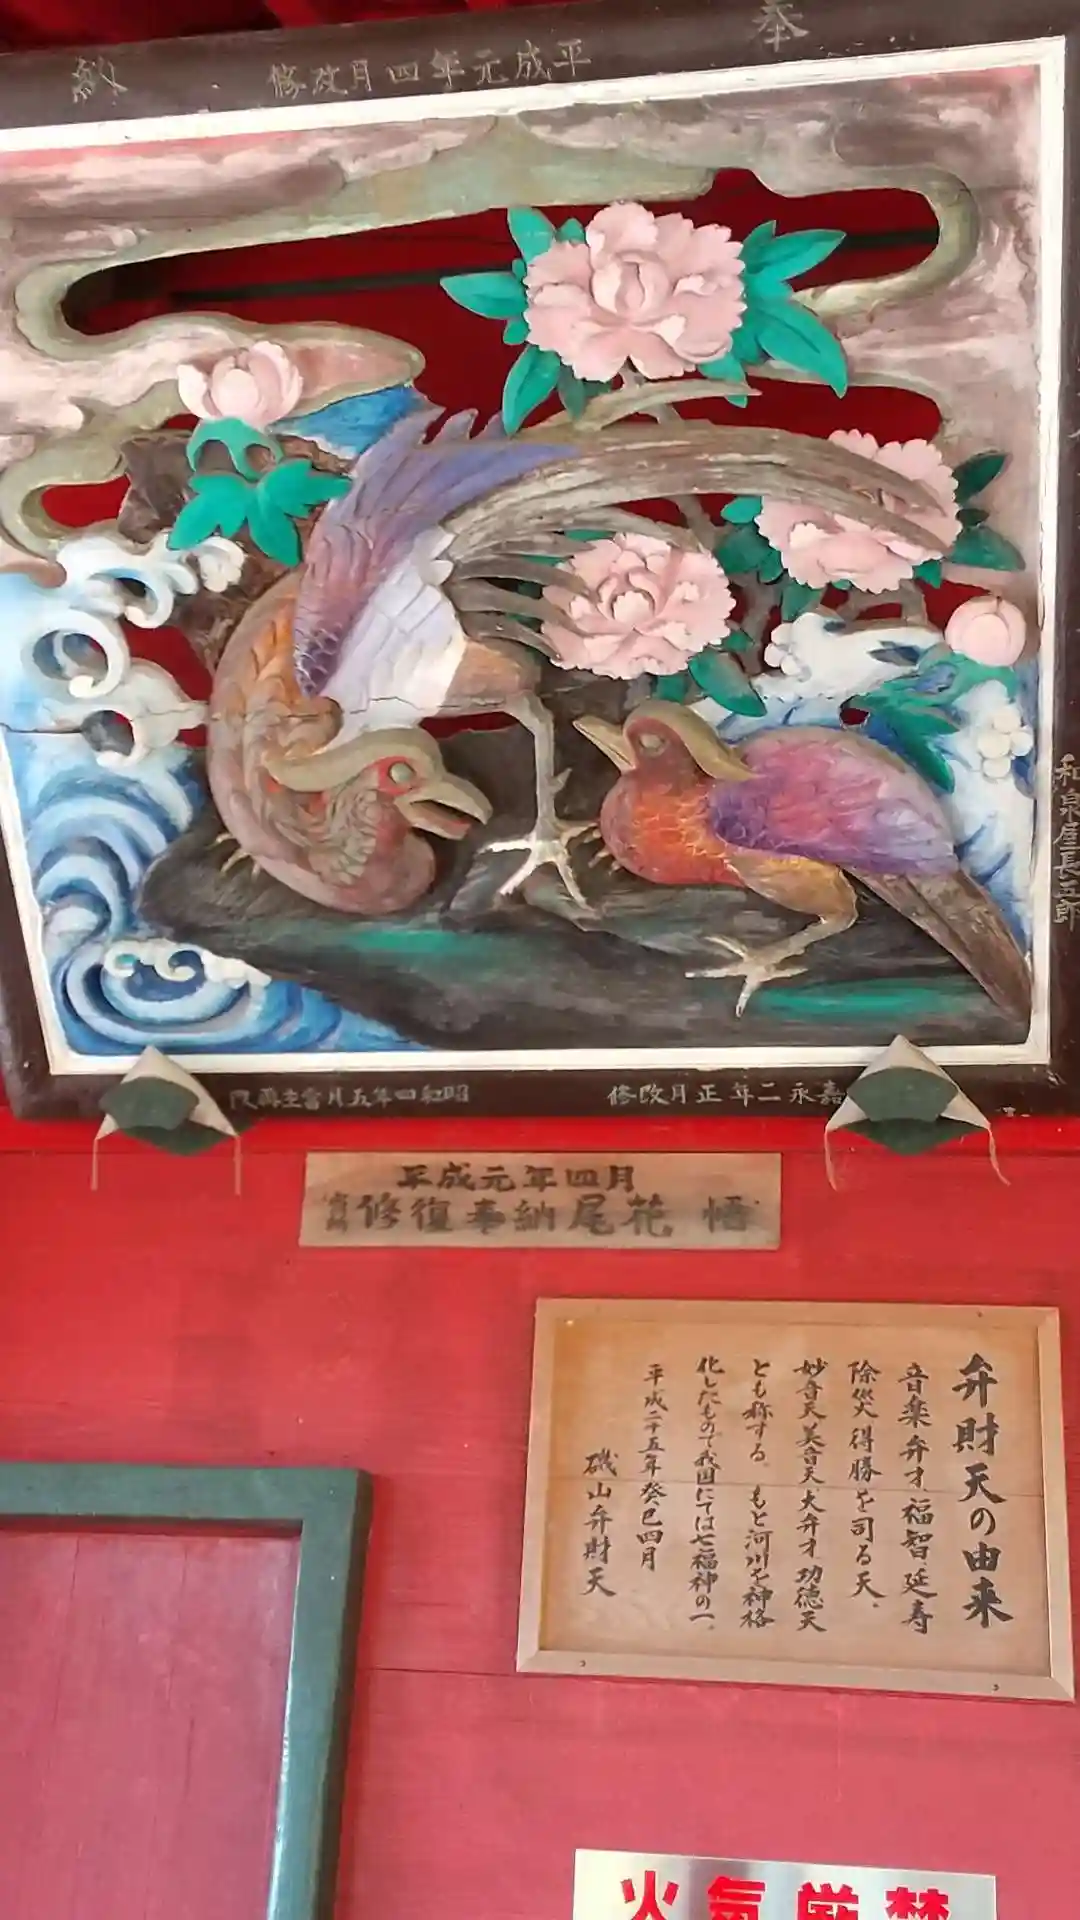 奉
納
平成元年四月改修
和泉屋長五郎
嘉永二年正月改修
昭和四年五月當主再修
平成元年四月
修復奉納尾花 悟
弁財天の由来
音楽弁才、福智、延寿
除災得勝を司る天、
妙音天美音天大弁才功徳天
とも称する。もと河川を神格
化したもので我国にては七福神の一、
平成二十五年癸巳四月
磯山弁財天
火気厳禁